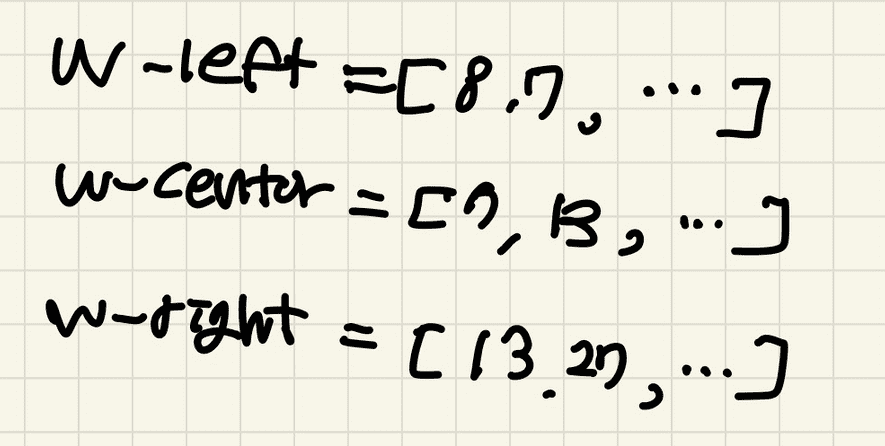 w-left = [8, 7, ...]
w-center = [7, 13, ...]
w-right = [13, 27, ...]